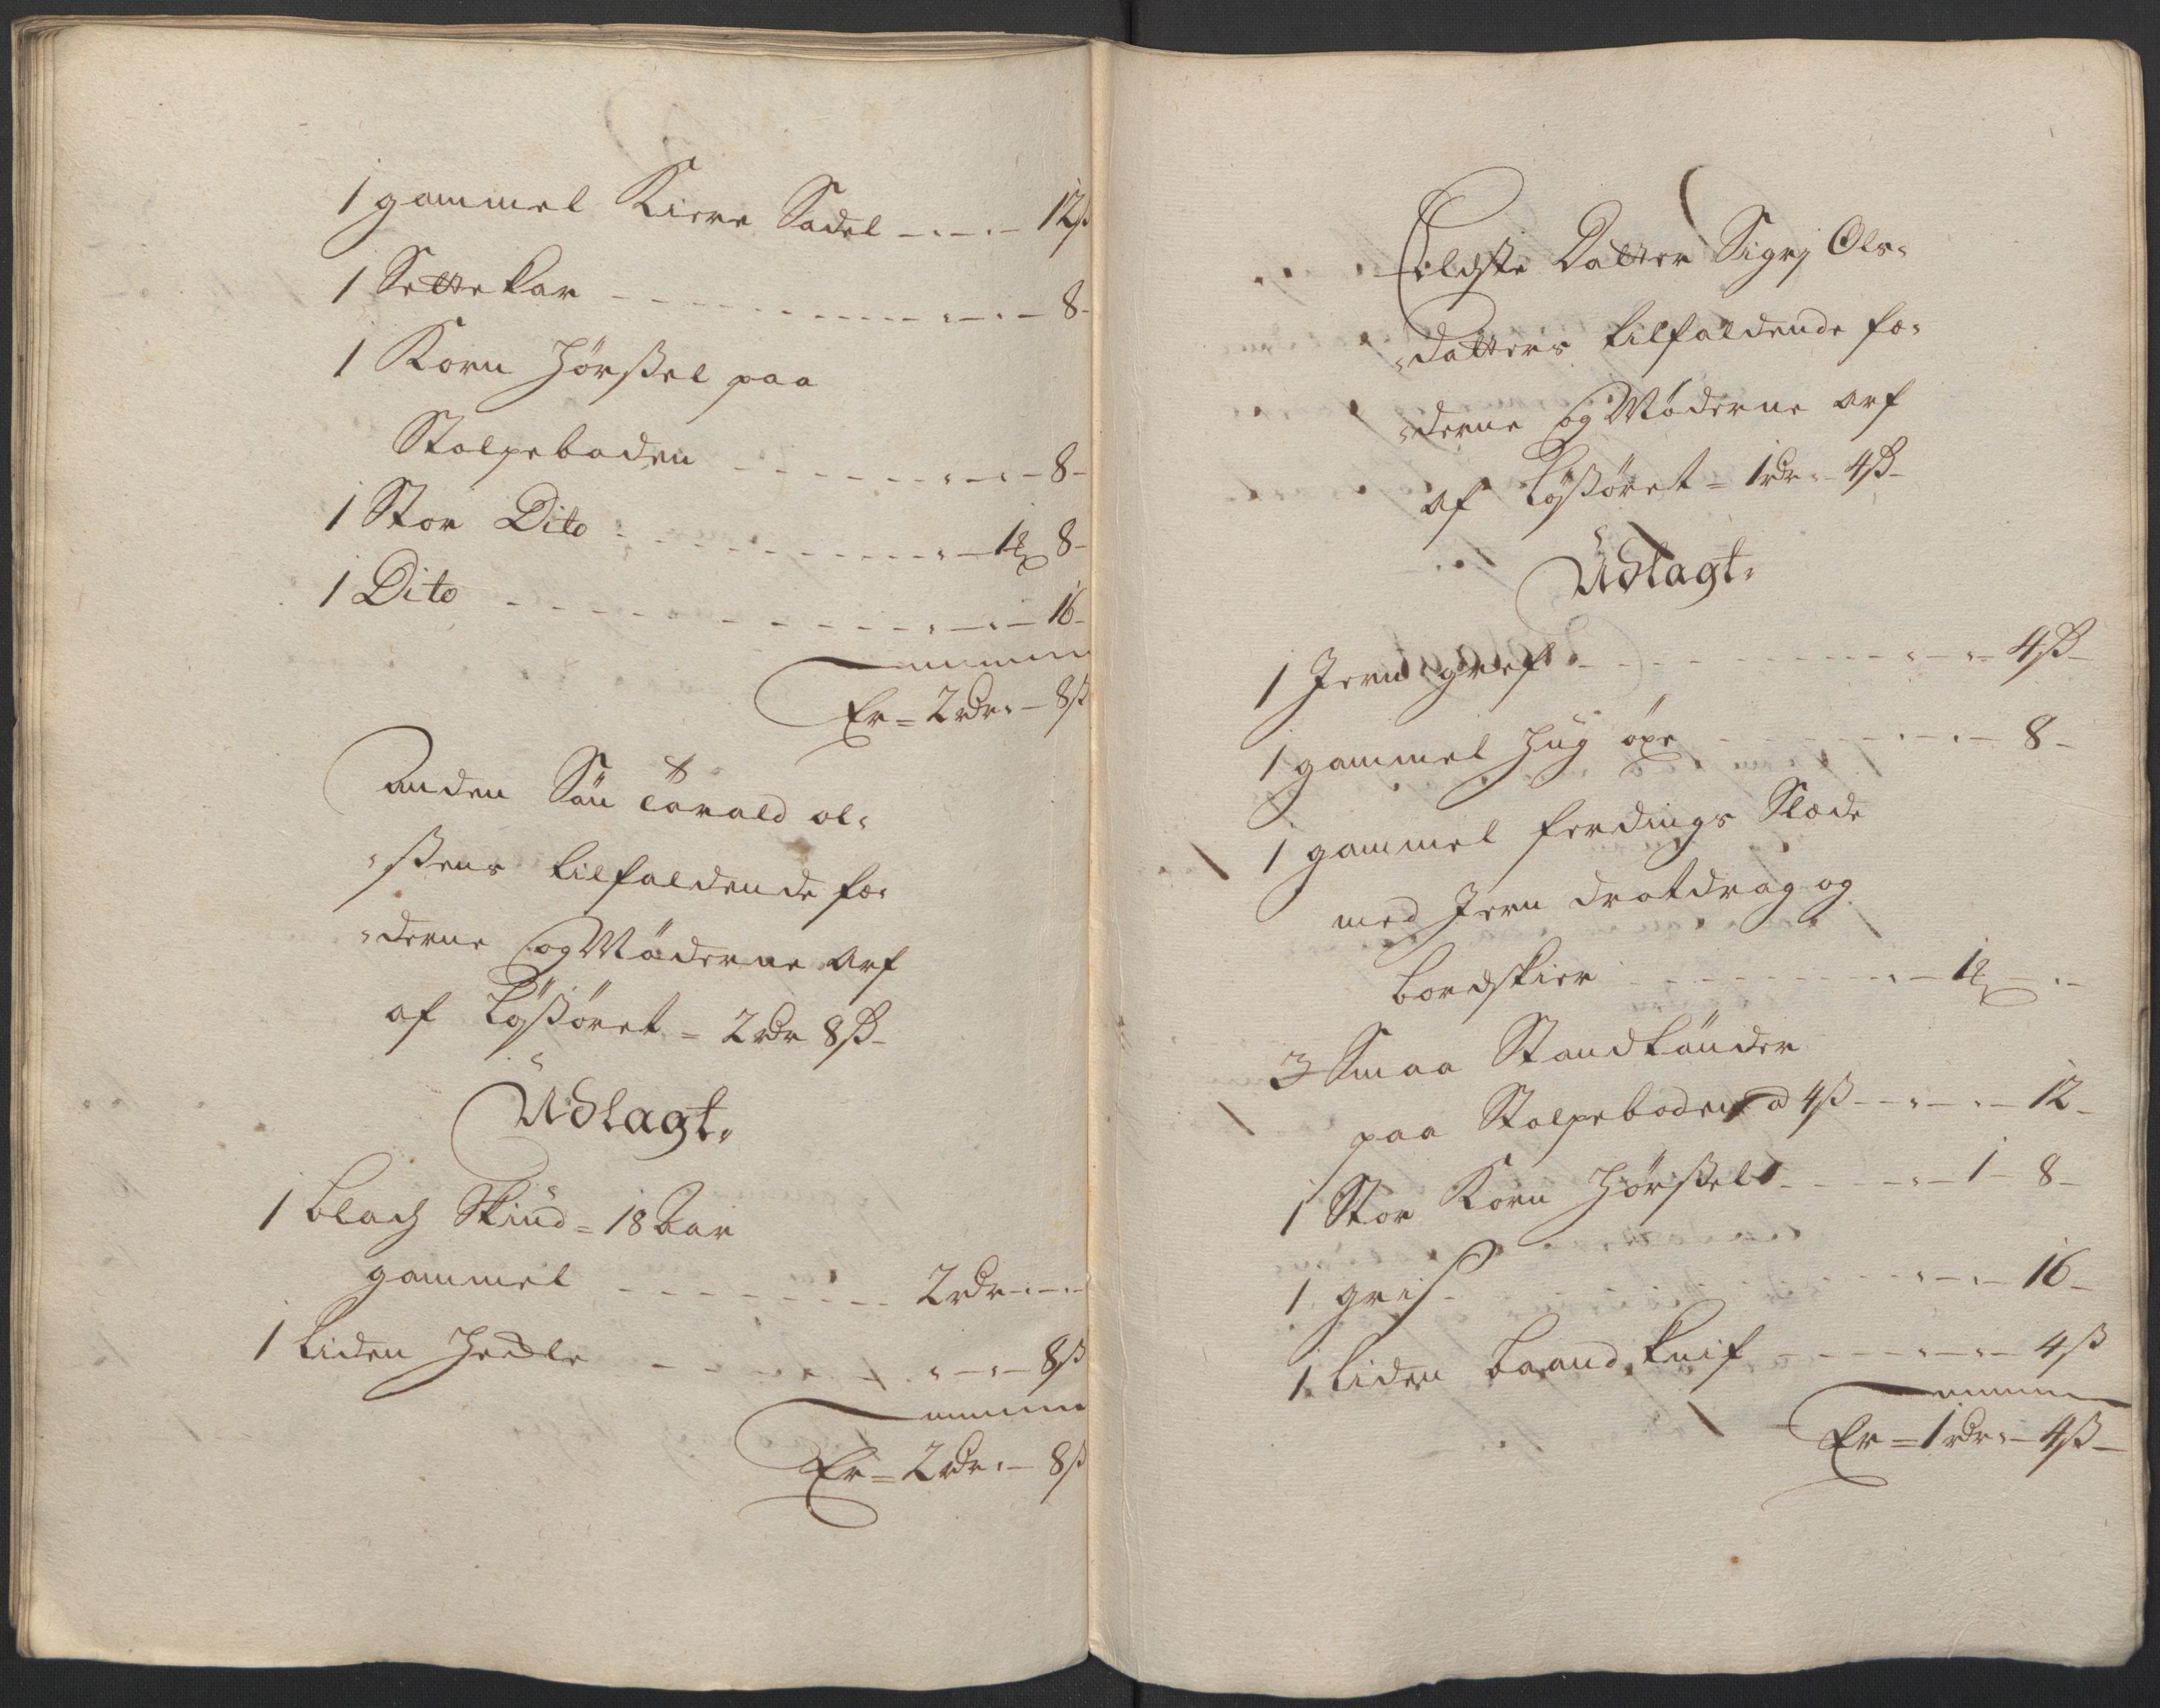 1 gammel Kiøre Sadel - - - 12ß
1 Settekar - - - 8-
1 Korn Hørßel paa
Stolpeboden - - - 8-
1 Stor Dito - - - 1 8-
1 Dito - - - 16-
Er = 2 rdr - 8ß
Anden Søn Tarald Ol-
-ßens tilfaldende Fæ-
-derne og Møderne Arf
af Løßøret = 2 rdr 8ß-
Udlagt.
1 blach Skiud = 18 Aar
gammel - - - 2 rdr - -
1 liden Hedle - - - 8ß
Er = 2 rdr - 8ß
Eldste Datter Sigrj Ols-
-datters tilfaldende Fæ-
-derne og Møderne Arf
af Løßøret = 1 rdr - 4ß-
Udlagt.
1 Jern gref - - - 4ß-
1 gammel Hug øxe - - - 8-
1 gammel ferdings Slæde
med Jern dratdrag og
bordskier - - - 1 -
3 Smaa Standtønder
paa Stolpeboden a 4ß - - - 12-
1 Stor Korn Hørßel - - - 1- 8-
1 gris - - - 16-
1 liden baand knif - - - 4ß
Er = 1 rdr - 4ß-